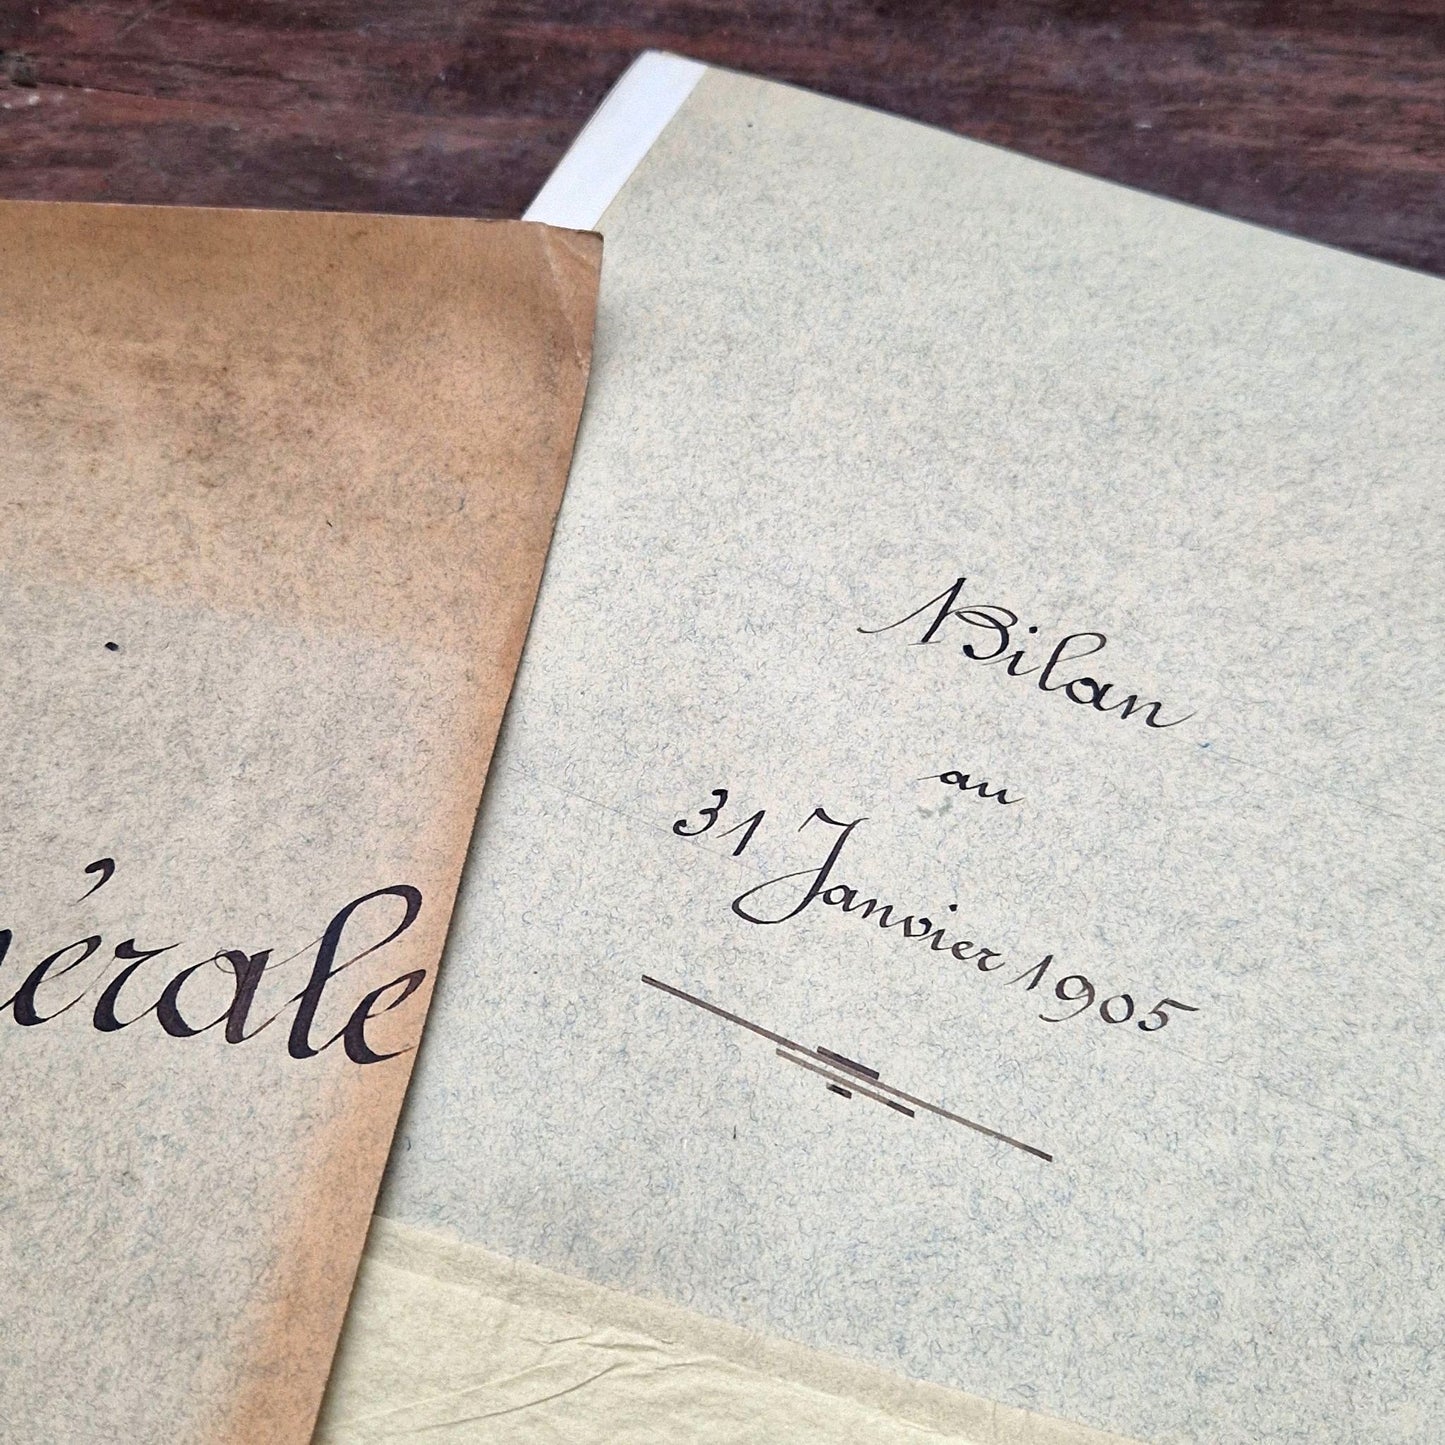 nérale
Bilan
au
31 Janvier 1905